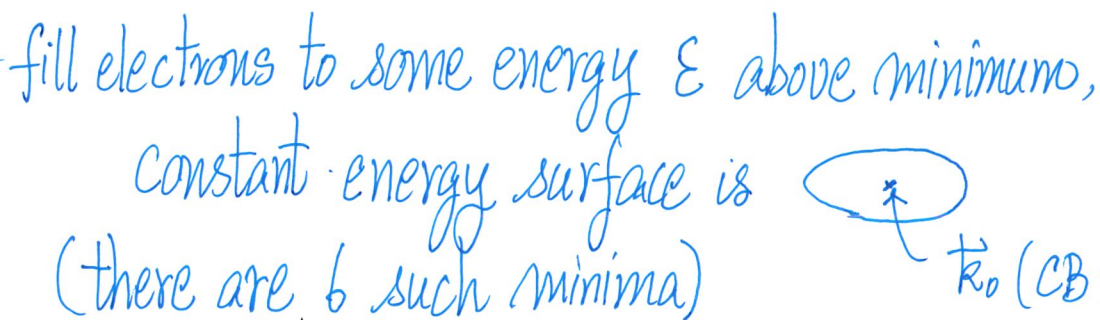 fill electrons to some energy ε above minimum,
constant energy surface is
k⃗₀ (CB
(there are 6 such minima)